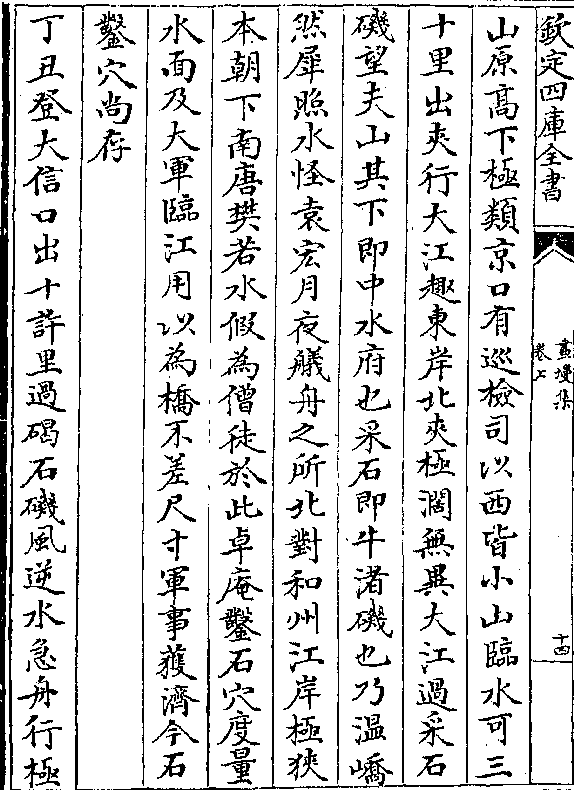 欽定四庫全書
畫墁集
卷七
十四
山原髙下極類京口有巡檢司以西皆小山臨水可三
十里出夾行大江趣東岸北夾極濶無異大江過采石
磯望夫山其下即中水府也采石即牛渚磯也乃温嶠
然犀照水怪袁宏月夜艤舟之所北對和州江岸極狹
本朝下南唐樊若水假為僧徒於此卓庵鑿石穴度量
水面及大軍臨江用以為橋不差尺寸軍事獲濟今石
鑿穴尚存
丁丑登大信口出十許里過碣石磯風逆水急舟行極